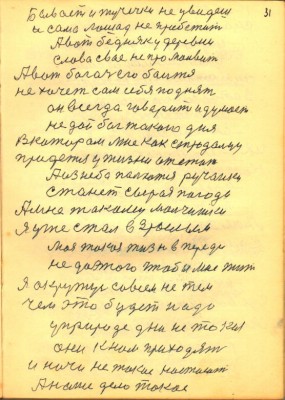 31
Бывает и тучички не увидеш
и сама лошад не прибежит
А вот бедняку деревни
слова свае не промолвит
А вот богач его боится
не хочет сам себя поднят
он всегда говорит и думает
не дай бог такого дня
В котором мне как
придется у жизни
А из неба польются ручайки
станет сырая погода
А мне такому мальчишки
Я уже стал взрослым
моя такая жизн впереди
не до этого чтобы мне жит
Я окружус совсем не тем
чем это будет надо
у природе дни не то как
они к нам приходят
и ночи не такие настают
А наше дело такое